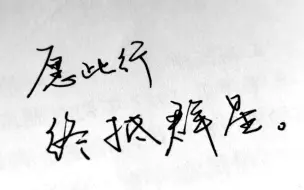 愿此行
终抵群星。